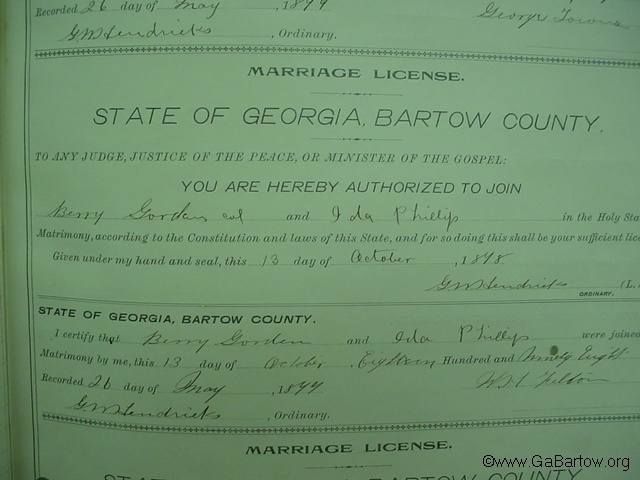 Recorded 26 day of May , 1899 George Towns
GW Hendricks , Ordinary.
MARRIAGE LICENSE.
STATE OF GEORGIA, BARTOW COUNTY.
TO ANY JUDGE, JUSTICE OF THE PEACE, OR MINISTER OF THE GOSPEL:
YOU ARE HEREBY AUTHORIZED TO JOIN
Berry Gordon col and Ida Phillips in the Holy Sta
Matrimony, according to the Constitution and laws of this State, and for so doing this shall be your sufficient lice
Given under my hand and seal, this 13 day of October , 1898
GW Hendricks (L.
ORDINARY.
STATE OF GEORGIA, BARTOW COUNTY.
I certify that Berry Gordon and Ida Phillips were joined
Matrimony by me, this 13 day of October , Eighteen Hundred and Ninety Eight
Recorded 26 day of May , 1899 W.H. Felton
GW Hendricks , Ordinary.
MARRIAGE LICENSE.
STATE OF GEORGIA, BARTOW COUNTY
©www.GaBartow.org